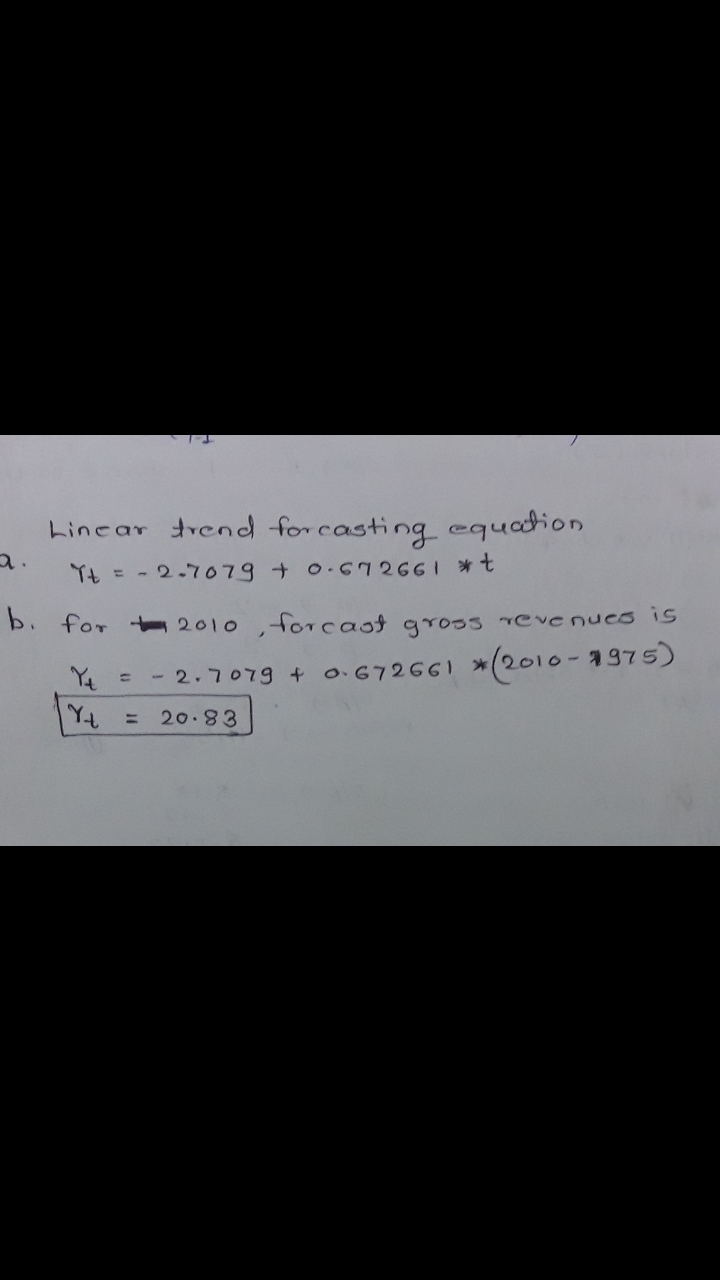 Linear trend forcasting equation
a. Yt = - 2.7079 + 0.672661 * t
b. for 2010, forcast gross revenues is
Yt = - 2.7079 + 0.672661 * (2010 - 1975)
Yt = 20.83